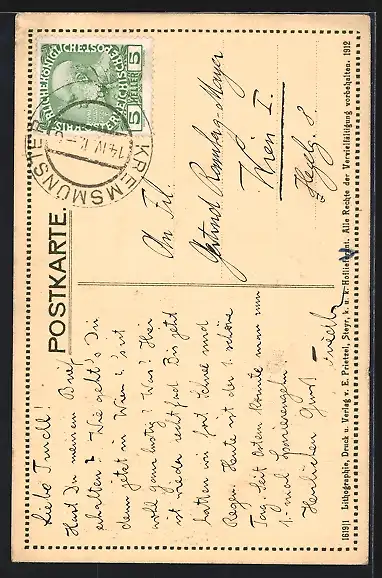 POSTKARTE.
KAISERLICHE KÖNIGLICHE ÖSTERREICHISCHE POST
5 HELLER 5
KREMSMÜNSTER
14 IV
An Frl.
Gertrud
Wien I.
Liebe Trudl!
Hast Du meinen Brief
erhalten? Wie geht's Dir
denn jetzt in Wien?
wohl ganz lustig? Was? Hier
ist wieder recht fad. Bis jetzt
hatten wir fort Schnee und
Regen. Heute ist der 1. schöne
Tag. Seit Ostern konnte man nun
1. mal spazierengehn.
Herzlichen Gruß
1619|1 Lithographie, Druck u. Verlag v. E. Prietzel, Steyr, k. u. k. Hoflieferant. Alle Rechte der Vervielfältigung vorbehalten. 1912